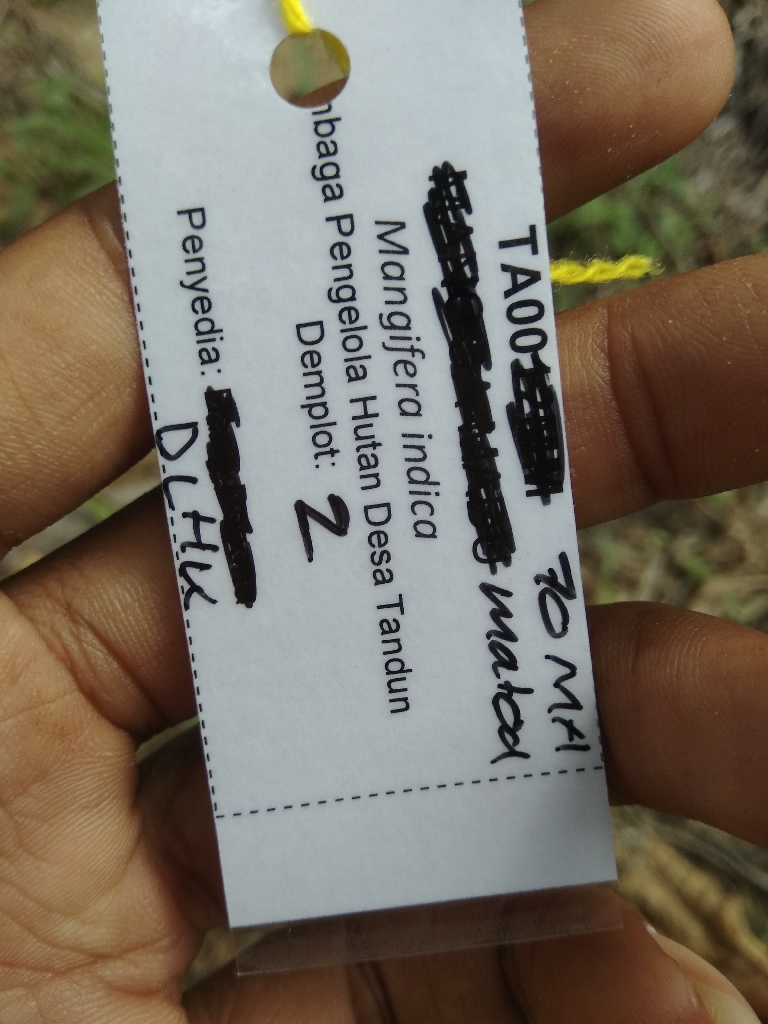 TA00 70 MA
matoa
Mangifera indica
mbaga Pengelola Hutan Desa Tandun
Demplot: 2
Penyedia:
DLHK